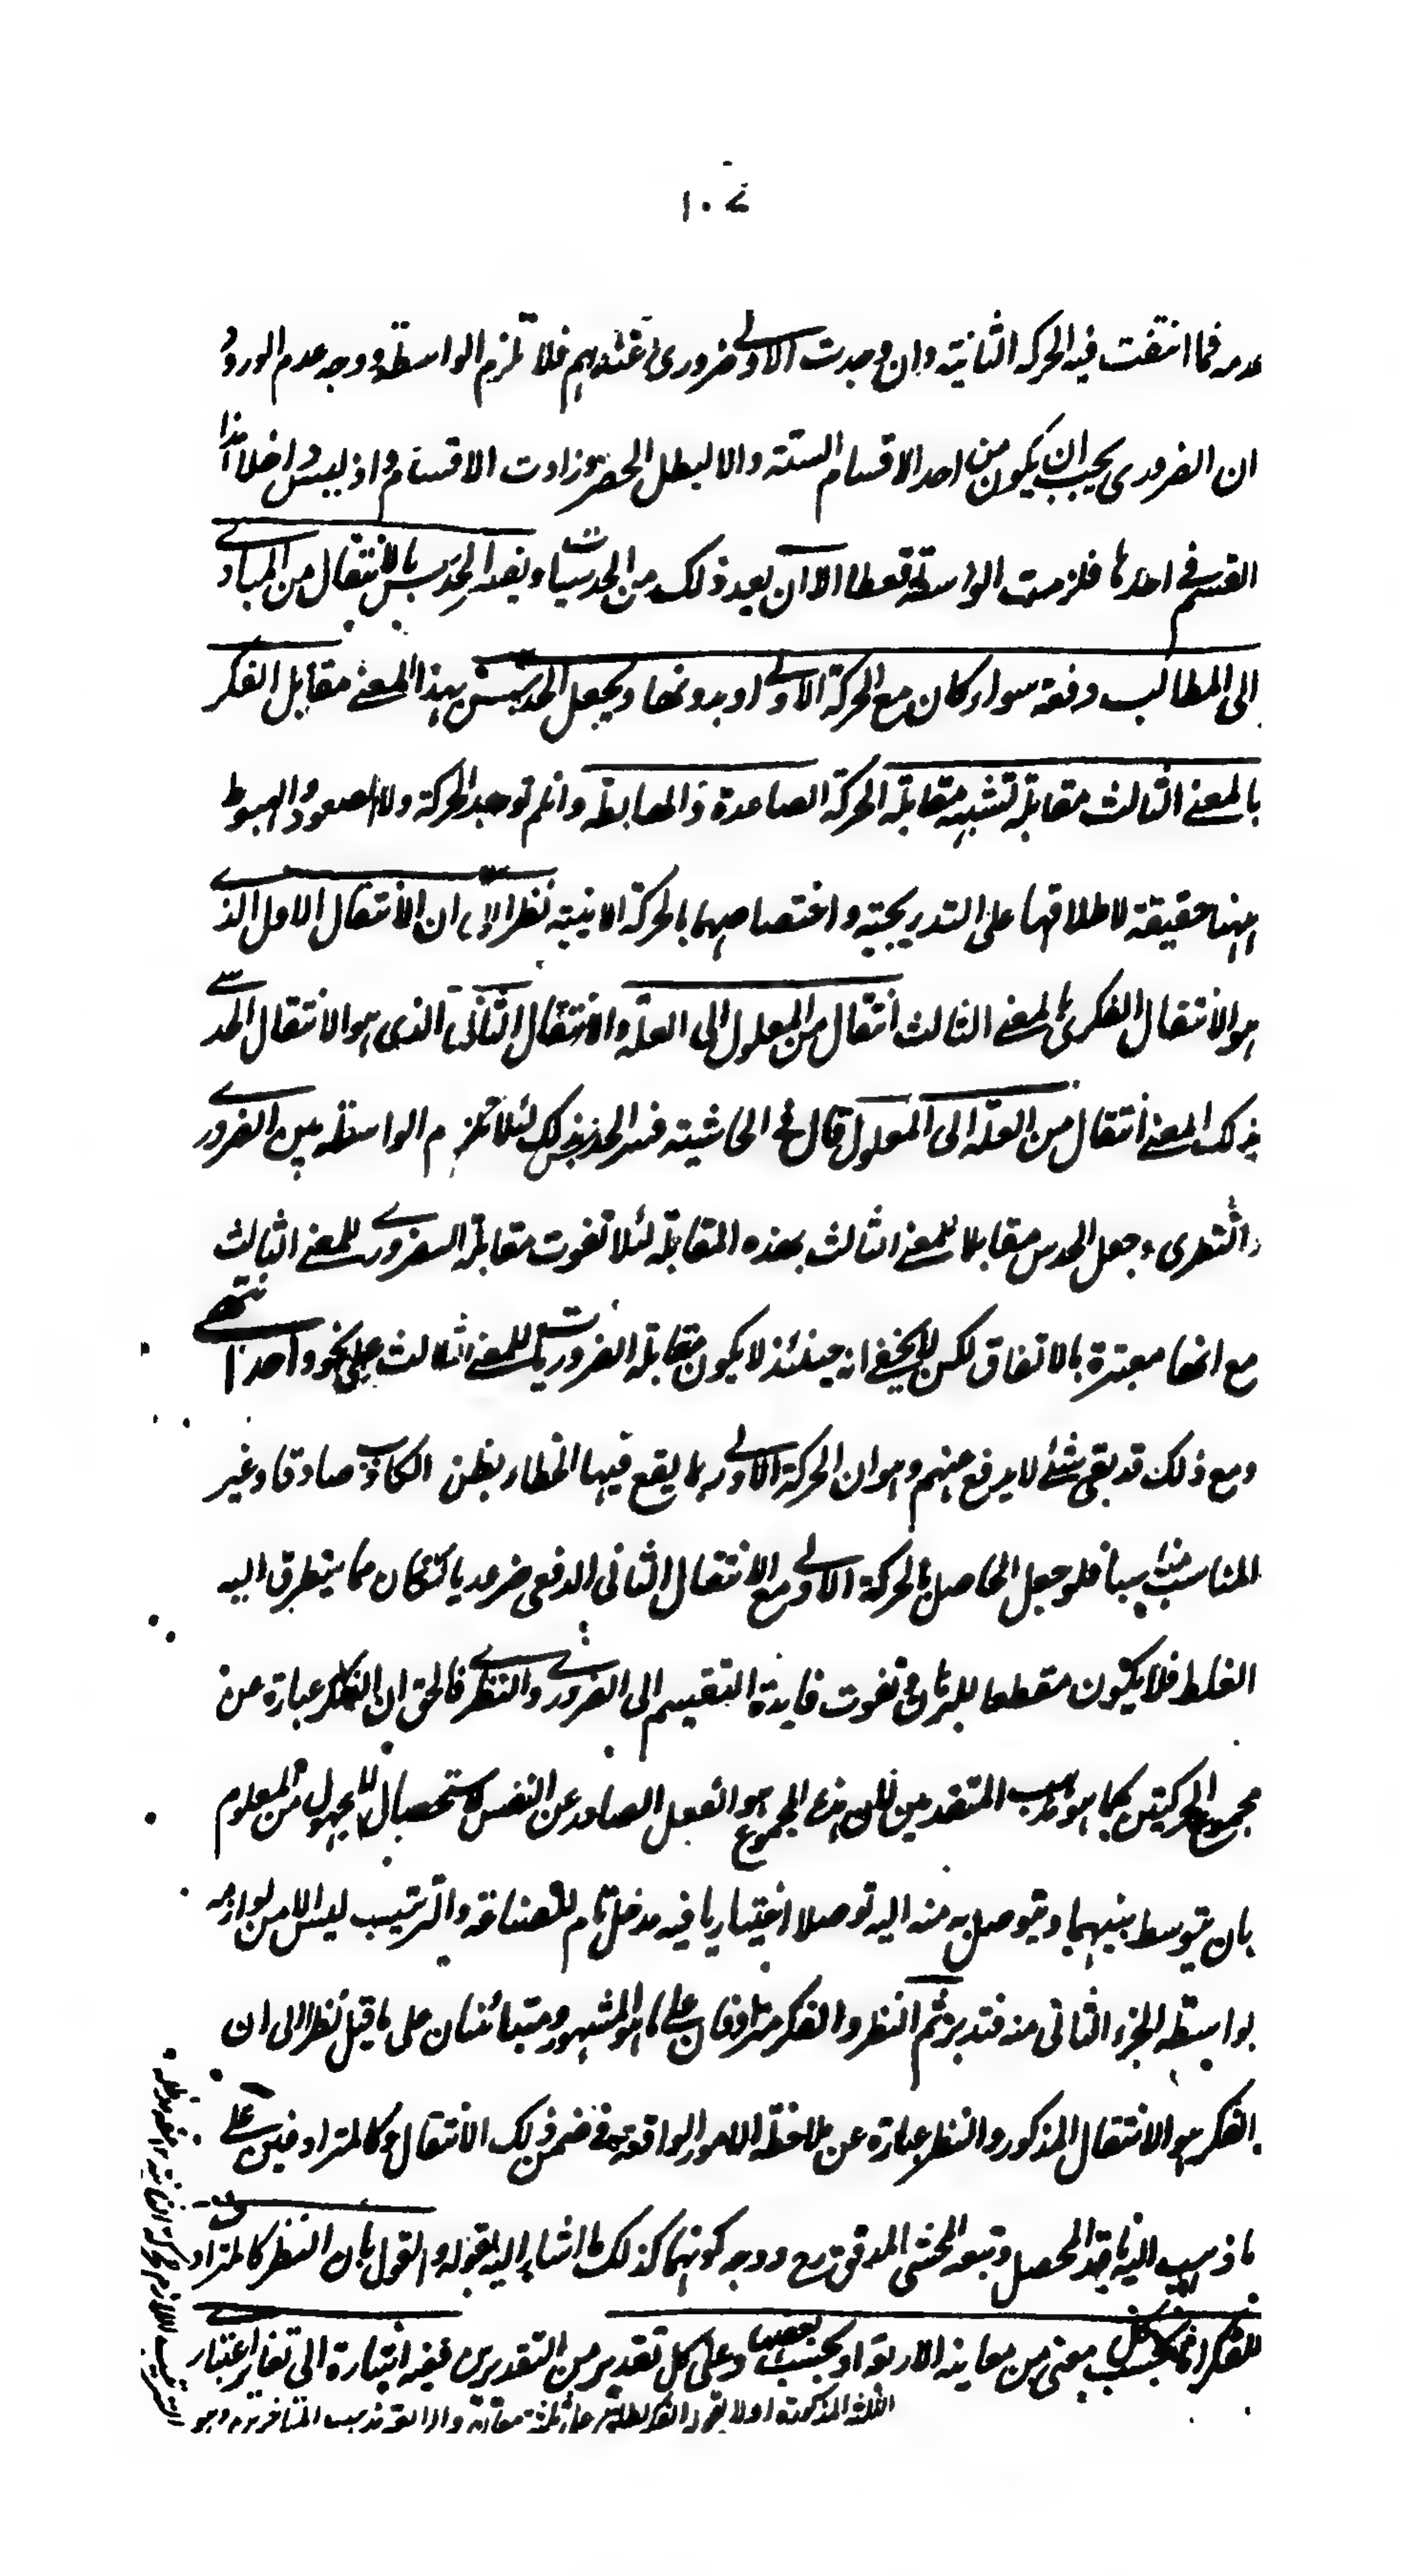 ١٠٤
عدمه فما انتفت فيه الحركة الثانية وان وجدت الاولى ضرورى عندهم فلا تلزم الواسطة ووجه عدم الورود
ان الضرورى يجب ان يكون من احد الاقسام الستة والا لبطل الحصر وزادت الاقسام واذ ليس داخلا هذا
القسم فى احدها فلزمت الواسطة قطعا الا ان يعد ذلك من الحدسيات ويفسر الحدس بالانتقال من المبادى
الى المطالب دفعة سواء كان مع الحركة الاولى او بدونها ويجعل الحدس بهذا المعنى مقابل الفكر
بالمعنى الثالث مقابلة تشبه مقابلة الحركة الصاعدة والهابطة وان لم توجد الحركة ولا الصعود والهبوط
ههنا حقيقة لاطلاقها على التدريجية واختصاصهما بالحركة الاينية نظرا الى ان الانتقال الاول الذى
هو الانتقال الفكرى بالمعنى الثالث انتقال من المعلول الى العلة والانتقال الثانى الذى هو الانتقال الحدسى
بذلك المعنى انتقال من العلة الى المعلول قال فى الحاشية فسر الحدس بذلك لئلا تلزم الواسطة بين الضرورى
والنظرى وجعل الحدس مقابلا للمعنى الثالث بهذه المقابلة لئلا تفوت مقابلة الضرورى للمعنى الثالث
مع انها معتبرة بالاتفاق لكن لا يخفى انه حينئذ لا يكون مقابلة الضروريات للمعنى الثالث على نحو واحد انتهى
ومع ذلك قد بقى شئ لا يدفع عنهم وهو ان الحركة الاولى ربما يقع فيها الخطاء بظن الكاذب صادقا وغير
المناسب مناسبا فلو جعل الحاصل بالحركة الاولى مع الانتقال الثانى الدفعى ضروريا لكان مما يتطرق اليه
الغلط فلا يكون مقطعا للبرهان وتفوت فايدة التقسيم الى الضرورى والنظرى فالحق ان الفكر عبارة عن
مجموع الحركتين كما هو مذهب المتقدمين لان هذا المجموع هو الفعل الصادر عن النفس لاستحصال المجهول من المعلوم
بان يتوسط بينهما ويتوصل به منه اليه توصلا اختياريا فيه مدخل تام للصناعة والترتيب ليس الا من لوازمه
بواسطة الجزء الثانى منه فتدبر ثم النظر والفكر مترادفان على ما هو المشهور ومتبائنان على ما قيل نظرا الى ان
الفكر هو الانتقال المذكور والنظر عبارة عن ملاحظة الامور الواقعة فى ضمن ذلك الانتقال وكالمترادفين على
ما ذهب اليه ناقد المحصل وتبعه المحشى المدقق رح ووجه كونهما كذلك ما اشار اليه بقوله والقول بان النظر كالمترادف
للفكر انما بحسب كل معنى من معانيه الاربعة او بحسب بعضها وعلى كل تقدير من التقديرين ففيه اشارة الى تغاير اعتبارى